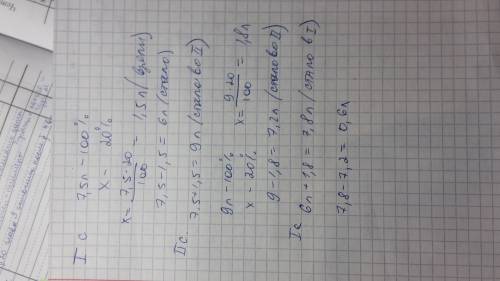 I с 7,5л – 100%
х – 20%
х = 7,5·20/100 = 1,5л (взяли)
7,5-1,5 = 6л (стало)
IIс. 7,5+1,5 = 9л (стало во II)
9л – 100%
х – 20%
х = 9·20/100 = 1,8л
9-1,8 = 7,2л (стало во II)
Iс 6л + 1,8 = 7,8л (стало в I)
7,8-7,2 = 0,6л